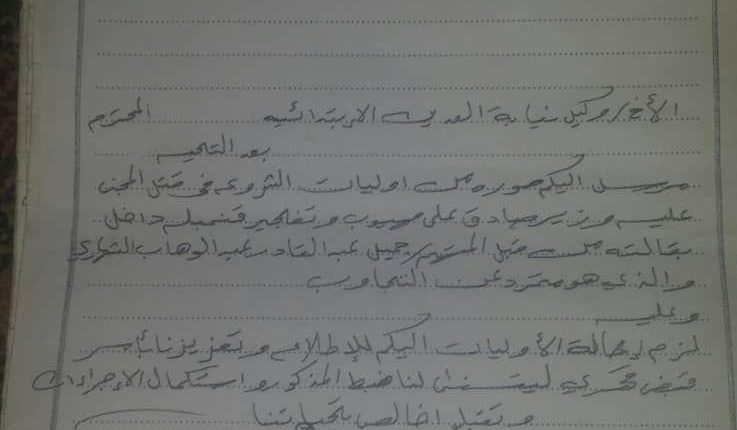 الأخ/ وكيل نيابة العدين الابتدائيه المحترم
بعد التحيه
مرسل اليكم صوره من اوليات الشروع في قتل المجني
عليه وزير صادق علي مهيوب وتفجير قنبله داخل
بقالته من قبل المتهم/ جميل عبدالقادر عبدالوهاب
والذي هو متمرد عن التجاوب
وعليه
لزم إحالة الأوليات اليكم للإطلاع وتعزيزنا بأمر
قبض قهري ليتسنى لنا ضبط المذكور واستكمال الإجراءات
وتقبلو خالص تحياتنا